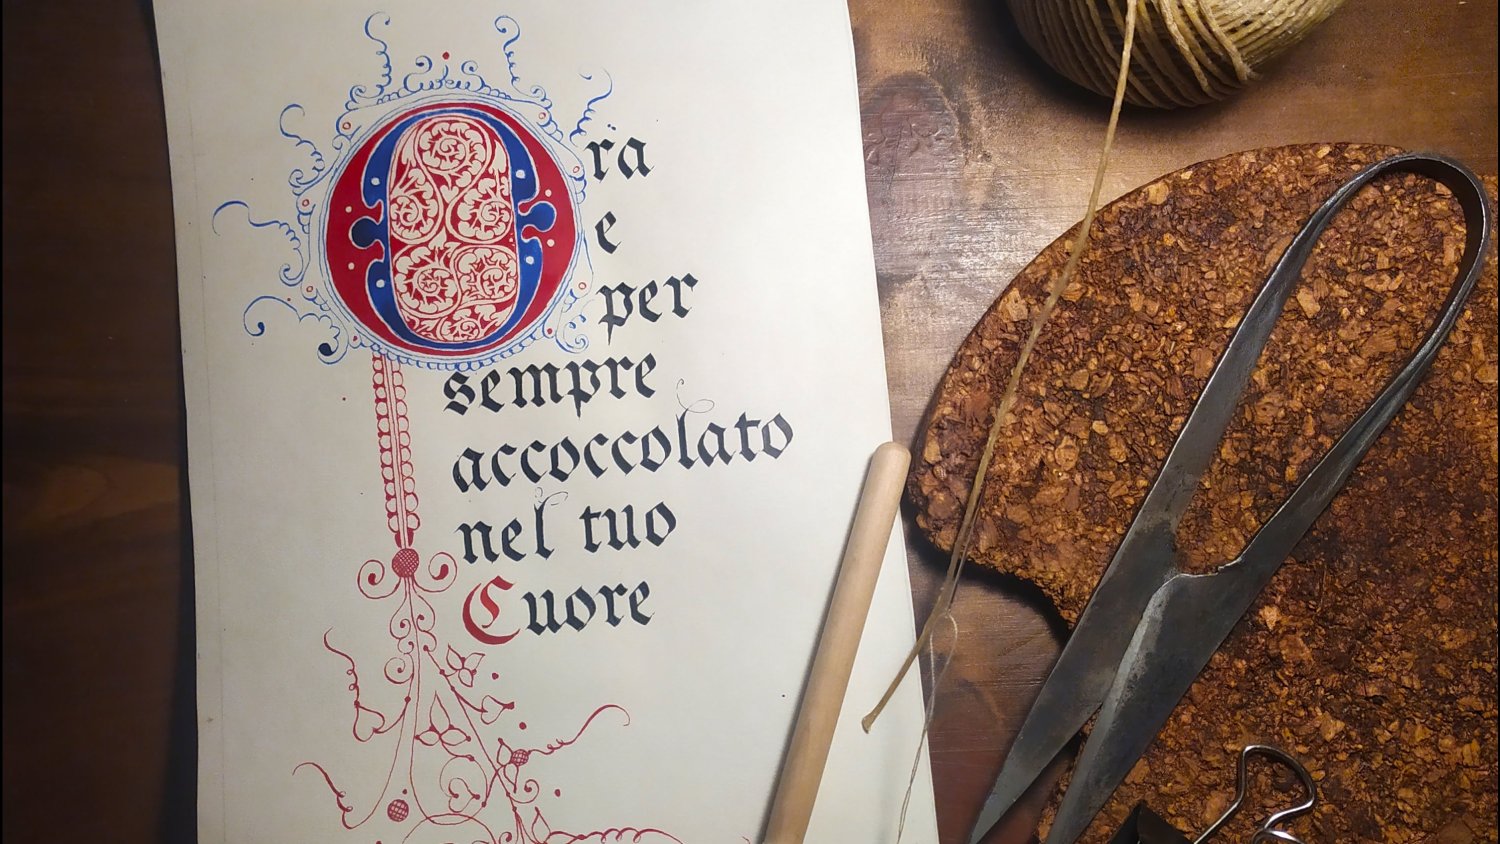 Ora
e
per
sempre
accoccolato
nel tuo
Cuore